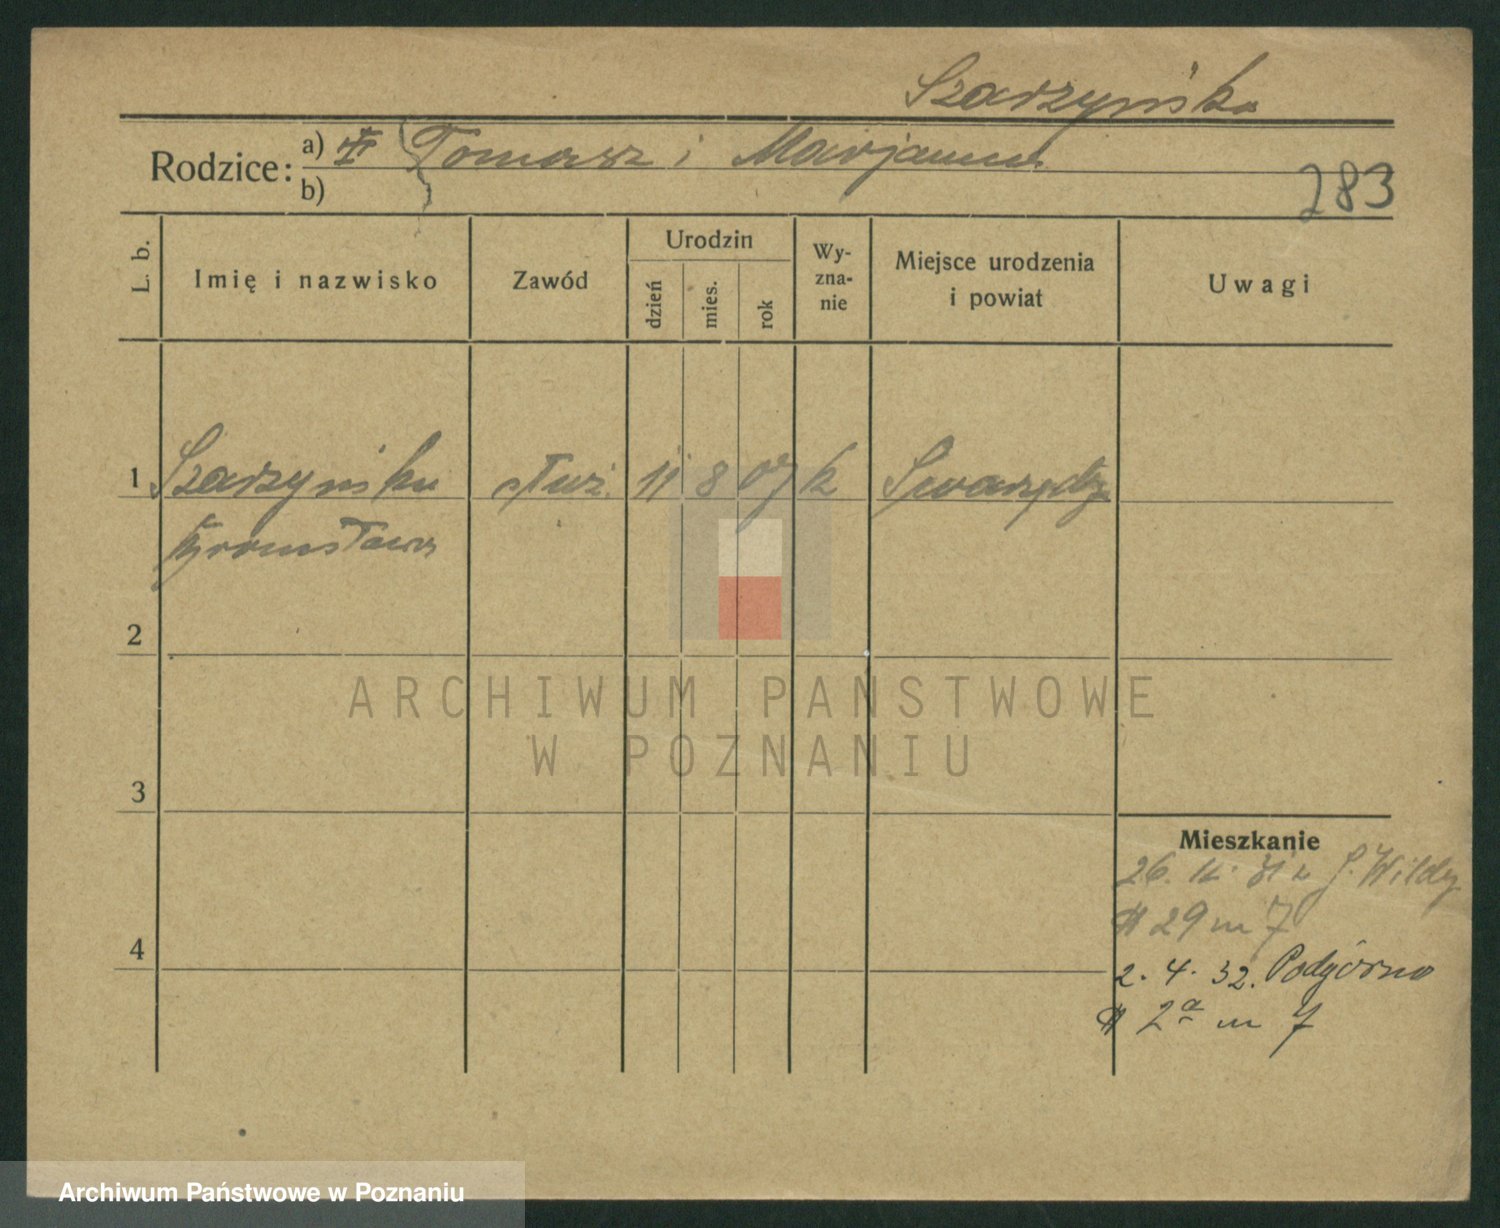 Szarzyńska
Rodzice: a) Tomasz i Marjanna
b)
283
L. b.
Imię i nazwisko
Zawód
Urodzin
dzień
mies.
rok
Wy-
zna-
nie
Miejsce urodzenia
i powiat
Uwagi
1 Szarzyńska służ. 11 8 07 k Swarzędz
Bronisława
2
3
4
Mieszkanie
26. 11. 31 G. Wildy
29 m 7
2. 4. 32. Podgórna
2a m 7
ARCHIWUM PAŃSTWOWE
W POZNANIU
Archiwum Państwowe w Poznaniu